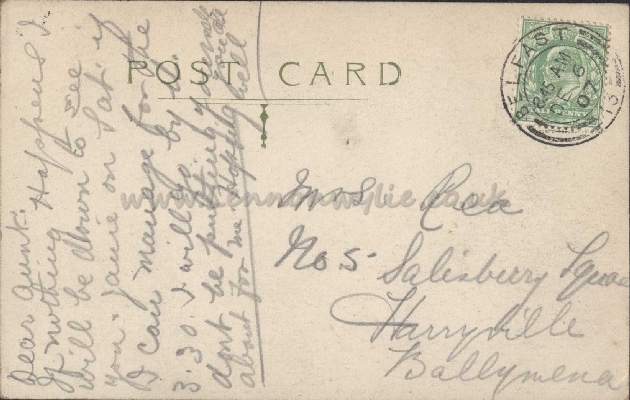 POST CARD
BELFAST
8.15 AM
DE 6
07
Dear Aunt.
If nothing Happens I
will be down to see
you & Jane on Sat. if
I can manage for the
3.30. I will go by it
dont be putting yourself
about for me Hoping you are well
Mrs Rea
No 5 Salisbury Square
Harryville
Ballymena